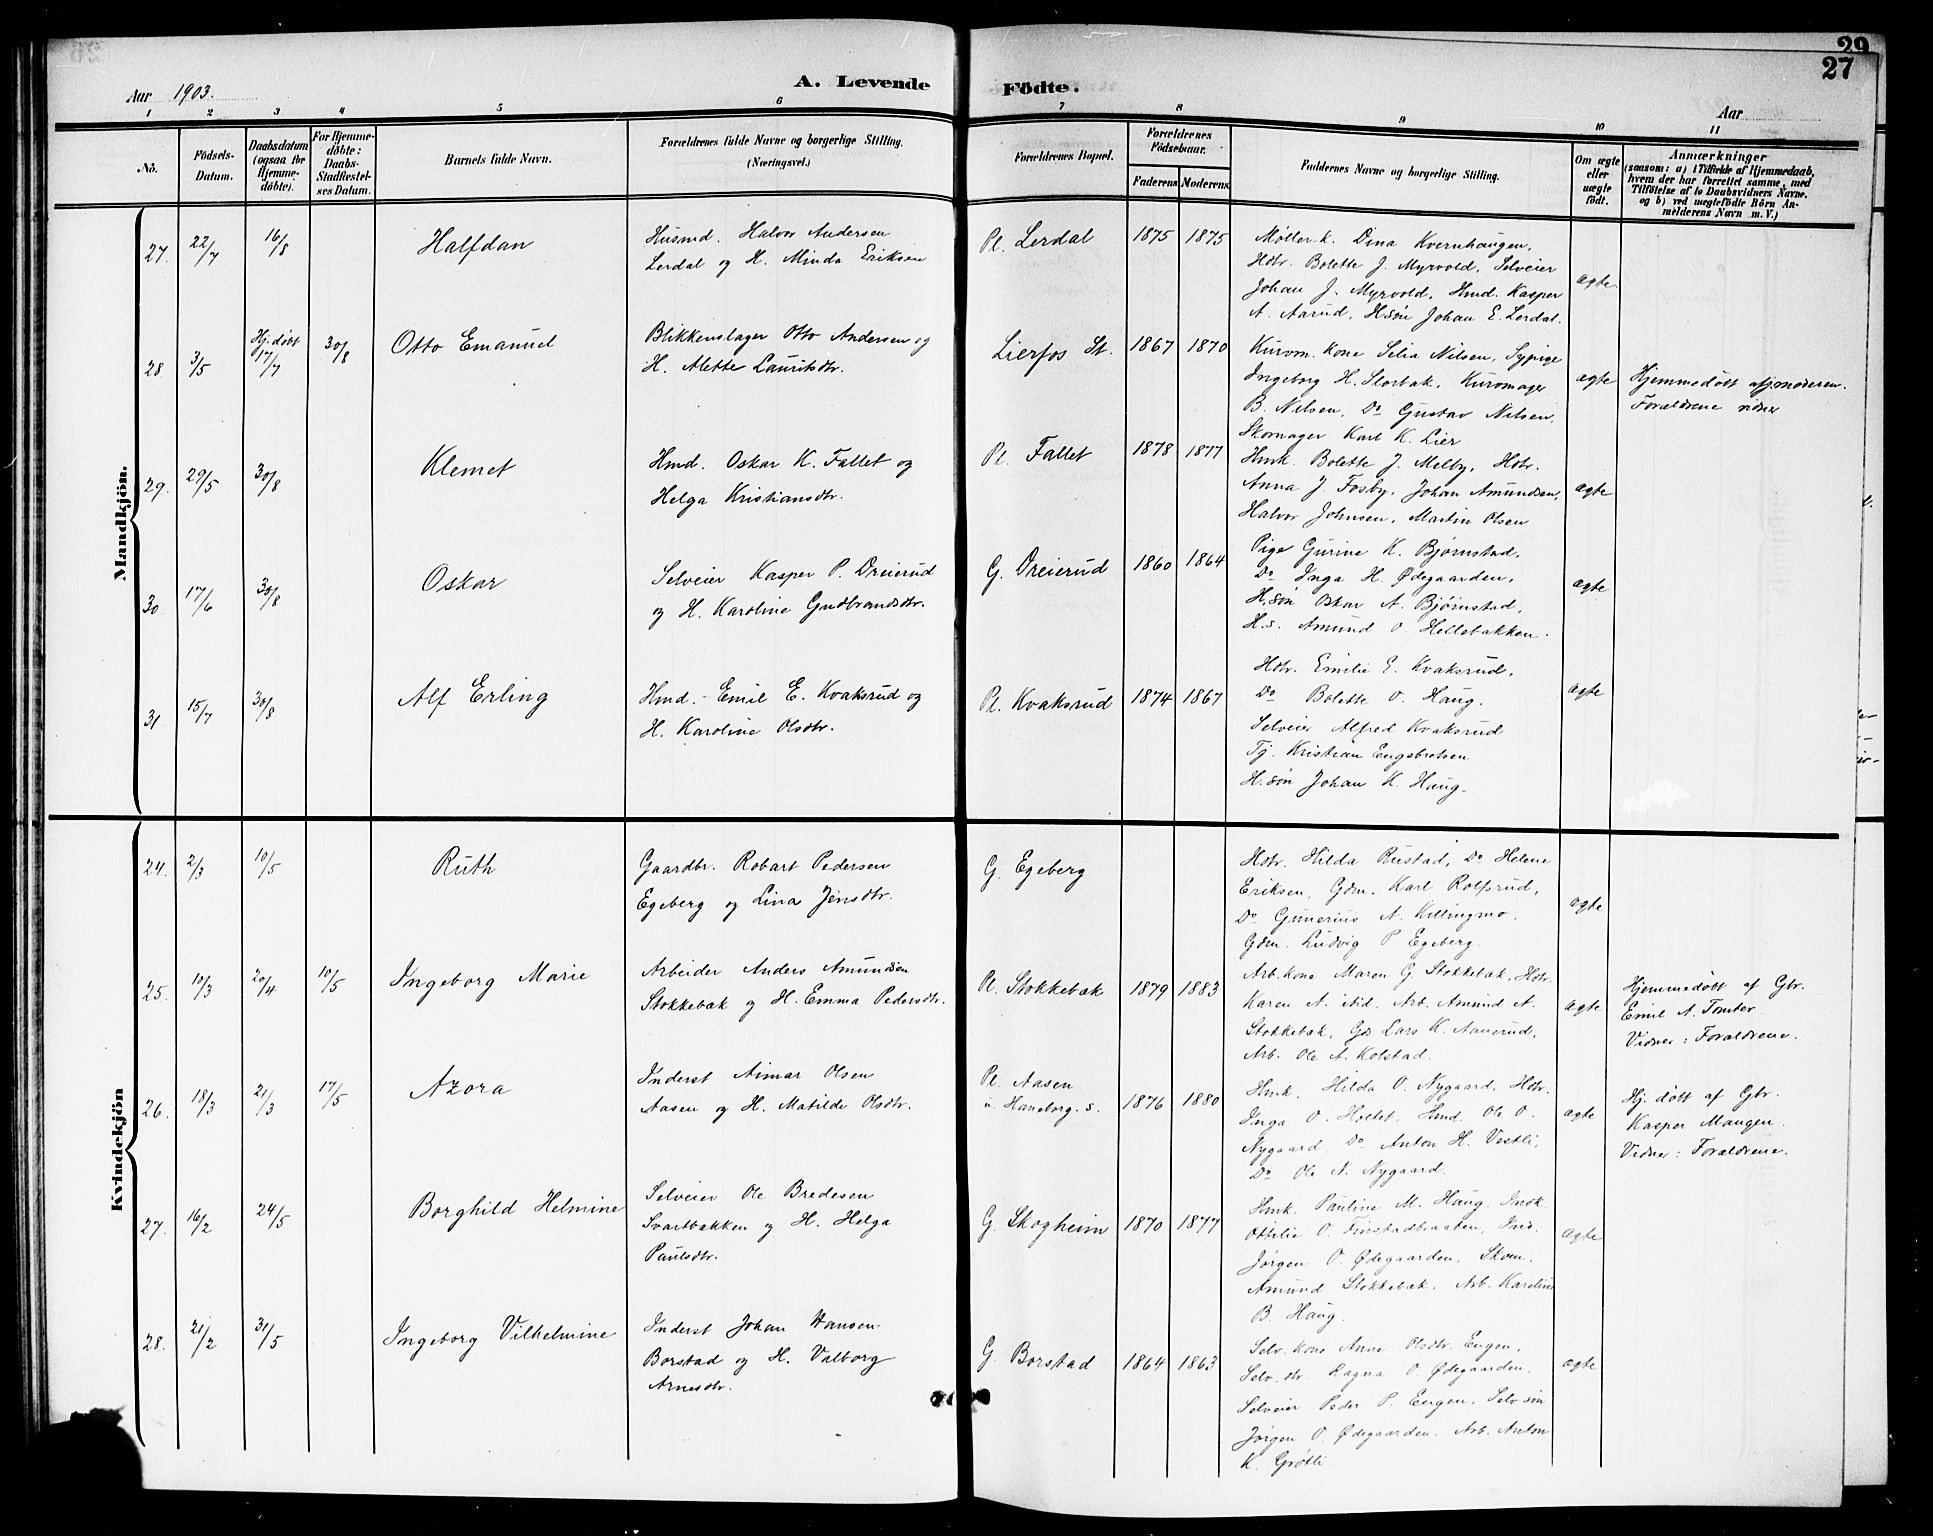 29
27
Aar 1903.
A. Levende
Födte.
Aar
1 2 3 4 5 6 7 8 9 10 11
No.
Födsels-
Datum.
Daabsdatum
(ogsaa for
Hjemme-
döbte).
For Hjemme-
döbte:
Daabs-
Stadfæstel-
ses Datum.
Barnets fulde Navn.
Forældrenes fulde Navne og borgerlige Stilling.
(Næringsvei.)
Forældrenes Bopæl.
Forældrenes
Födselsaar.
Faderens Moderens
Faddernes Navne og borgerlige Stilling.
Om ægte
eller
uægte
födt.
Anmærkninger
(saasom: a) i Tilfælde af Hjemmedaab,
hvem der har forrettet samme, med
Tilföielse af to Daabsvidners Navne.
og b) ved uægtefödte Börn An-
melderens Navn m. V.)
Mandkjön.
27. 22/7 16/8
Halfdan
Husmd. Halvor Andersen
Lerdal og H. Minda Eriksen
Pl. Lerdal
1875 1875
Møller k. Dina Kvernhaugen,
Hdtr. Bolette J. Myrvold, Selveier
Johan J. Myrvold, Hmd. Kasper
A. Aarud, H.søn Johan E. Lerdal.
ægte
28. 3/5
Hj. døbt
17/7
30/8
Otto Emanuel
Blikkenslager Otto Andersen og
H. Alette Lauritsdtr.
Lierfos St.
1867 1870
Kurvm. kone Selia Nilsen, Sypige
Ingeborg H. Storbak, Kurvmager
B. Nilsen, Do Gustav Nilsen,
Skomager Karl K. Lier
ægte
Hjemmedøbt af jmoderen.
Forældrene vidner
29. 29/5 30/8
Klemet
Hmd. Oskar K. Fallet og
Helga Kristiansdtr.
Pl. Fallet
1878 1877
Hmk. Bolette J. Melby, Hdtr.
Anna J. Fosby, Johan Amundsen,
Halvor Johnsen, Martin Olsen
ægte
30. 17/6 30/8
Oskar
Selveier Kasper P. Dreierud
og H. Karoline Gudbrandsdtr.
G. Dreierud
1860 1864
Pige Gurine K. Bjørnstad,
Do Inga H. Ødegaarden,
H.søn Oskar A. Bjørnstad,
H.s. Amund O. Hellebakken.
ægte
31. 15/7 30/8
Alf Erling
Hmd. Emil E. Kvaksrud og
H. Karoline Olsdtr.
Pl. Kvaksrud
1874 1867
Hdtr. Emilie E. Kvaksrud,
Do Bolette O. Haug.
Selveier Alfred Kvaksrud
Tj. Kristian Engebretsen
H.søn Johan K. Haug.
ægte
Kvindekjön
24. 2/3 10/5
Ruth
Gaardbr. Robart Pedersen
Egeberg og Lina Jensdtr.
G. Egeberg
Hdtr. Hilda Rustad, Do Helene
Eriksen, Gdm. Karl Rolfsrud,
Do Gunerius A. Killingmo.
Gdm. Ludvig P Egeberg.
ægte
25. 10/3 20/4 10/5
Ingeborg Marie
Arbeider Anders Amundsen
Stokkebæk og H. Emma Pedersdtr.
Pl. Stokkebæk
1879 1883
Arb. kone Maren G. Stokkebæk, Hdtr.
Karen A. ibid, Arb. Amund A.
Stokkebæk, Gds Lars K. Aanerud,
Arb. Ole A. Kolstad.
ægte
Hjemmedøbt af Gbr.
Emil A. Tomter
Vidner: Forældrene.
26. 18/3 21/3 17/5
Azora
Inderst Aimar Olsen
Aasen og H. Matilde Olsdtr.
Pl. Aasen
u. Haneborg. s.
1876 1880
Hmk. Hilda O. Nygaard, Hdtr.
Inga O. Holtet, Hmd. Ole O.
Nygaard, Do Anton H. Vestli,
Do Ole N. Nygaard.
ægte
Hj. døbt af Gbr.
Kasper Mangen.
Vidner: Forældrene.
27. 16/2 24/5
Borghild Helmine
Selveier Ole Bredesen
Svartbakken og H. Helga
Paulsdtr.
G. Skogheim
1870 1877
Hmk. Pauline M. Haug, Indk.
Ottilie O. Finstadbraaten, Ind.
Jørgen O. Ødegaarden, Skom.
Amund Stokkebæk. Arb. Karelius
B. Haug.
ægte
28. 21/2 31/5
Ingeborg Vilhelmine
Inderst Johan Hansen
Borstad og H. Valborg
Arnesdtr.
G. Borstad
1864 1863
Selv. kone Anne Olsdtr. Engen,
Selv. dtr. Ragna O. Ødegaarden,
Selveier Peder P. Engen, Selv søn
Jørgen O. Ødegaarden. Arb. Anton
K. Grøtli
ægte